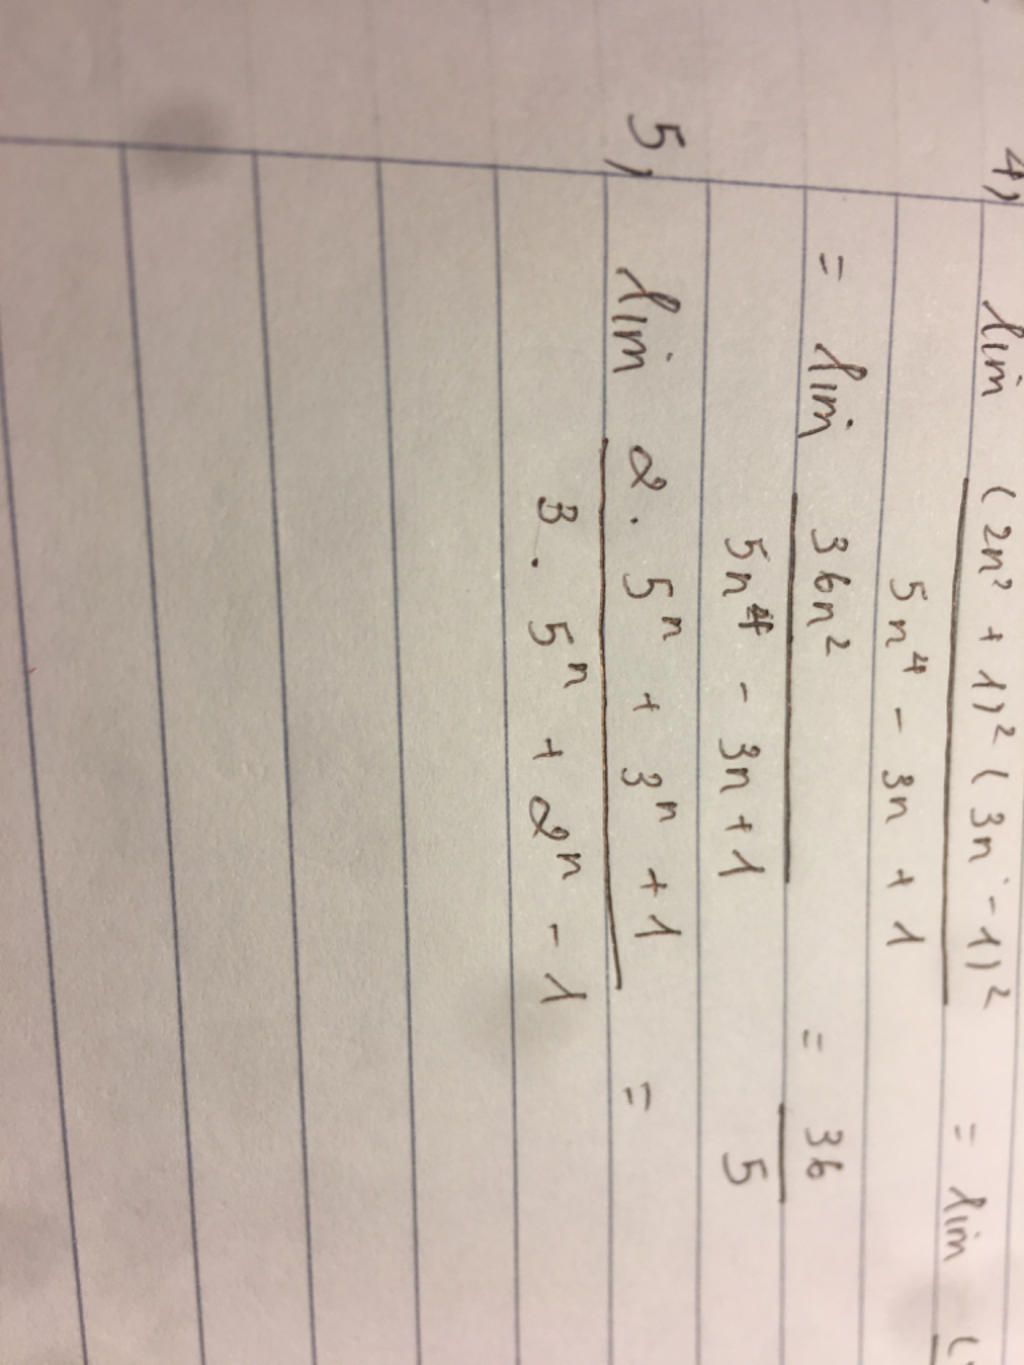 4) lim (2n² + 1)² (3n - 1)² = lim (
5n⁴ - 3n + 1
= lim 36n² = 36
5n⁴ - 3n + 1 5
5) lim 2. 5ⁿ + 3ⁿ + 1 =
3. 5ⁿ + 2ⁿ - 1